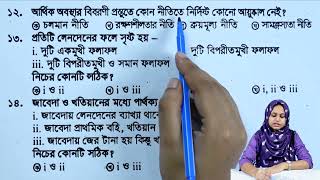 ১২. আর্থিক অবস্থার বিবরণী প্রস্তুতে কোন নীতিতে নির্দিষ্ট কোনো আয়ুষ্কাল নেই?
ⓐ চলমান নীতি ⓑ রক্ষণশীলতার নীতি ⓒ ক্রয়মূল্য নীতি ⓓ সামঞ্জস্যতা নীতি
১৩. প্রতিটি লেনদেনের ফলে সৃষ্ট হয় –
i. দুটি একমুখী ফলাফল ii. দুটি বিপরীতমুখী ফলাফল
iii. দুটি বিপরীতমুখী ও সমান ফলাফল
নিচের কোনটি সঠিক?
i ও ii i ও iii
১৪. জাবেদা ও খতিয়ানের মধ্যে পার্থক্য
i. জাবেদায় লেনদেনের ব্যাখ্যা থাকে
ii. জাবেদা প্রাথমিক বহি, খতিয়ান
iii. জাবেদায় জের টানা হয় কিন্তু
নিচের কোনটি সঠিক?
i ও ii i ও iii